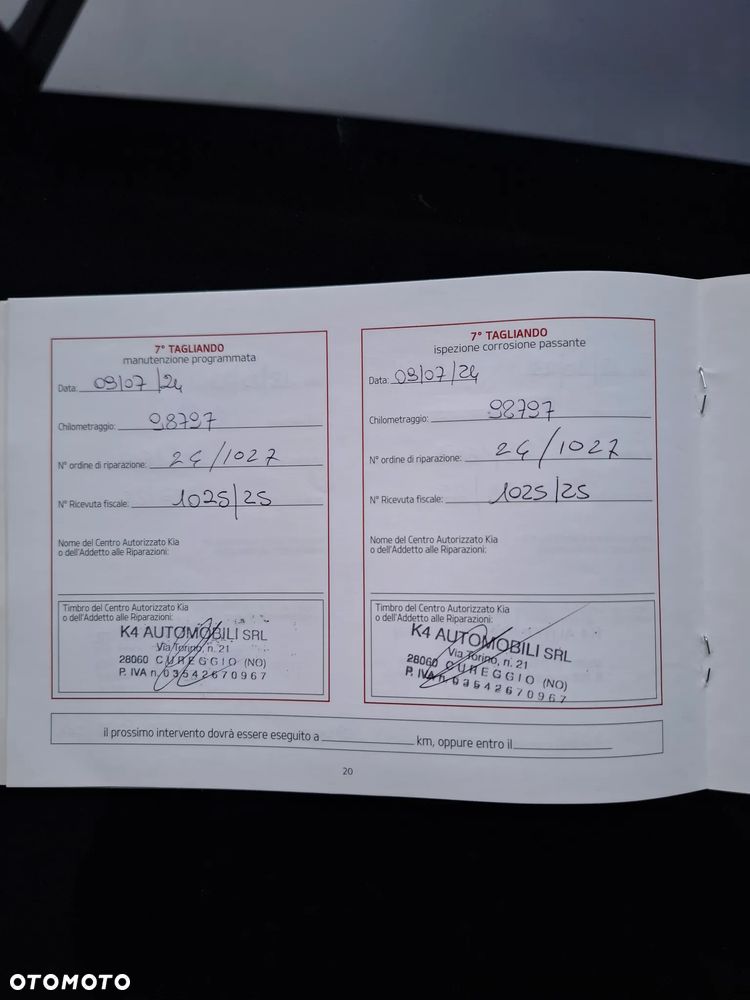 7° TAGLIANDO
manutenzione programmata
Data: 09/07/24
Chilometraggio: 98797
N° ordine di riparazione: 24/1027
N° Ricevuta fiscale: 1025/25
Nome del Centro Autorizzato Kia
o dell'Addetto alle Riparazioni:
Timbro del Centro Autorizzato Kia
o dell'Addetto alle Riparazioni:
K4 AUTOMOBILI SRL
Via Torino, n. 21
28060 CUREGGIO (NO)
P. IVA n. 03542670967
7° TAGLIANDO
ispezione corrosione passante
Data: 09/07/24
Chilometraggio: 98797
N° ordine di riparazione: 24/1027
N° Ricevuta fiscale: 1025/25
Nome del Centro Autorizzato Kia
o dell'Addetto alle Riparazioni:
Timbro del Centro Autorizzato Kia
o dell'Addetto alle Riparazioni:
K4 AUTOMOBILI SRL
Via Torino, n. 21
28060 CUREGGIO (NO)
P. IVA n. 03542670967
il prossimo intervento dovrà essere eseguito a km, oppure entro il
20
OTOMOTO